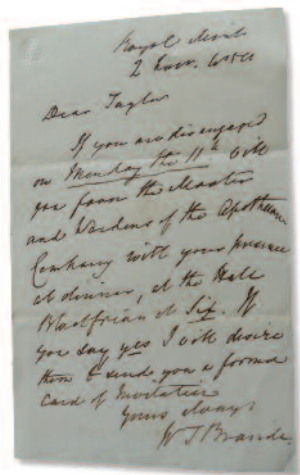 Royal Mint
2
Dear Taylor
If you are disengaged
on Monday the 11th will
you favor the Master
and Wardens of the Apothecaries
Company with your presence
at dinner, at the Hall
Blackfriars at Six. If
you say yes I will desire
them to send you a formal
Card of Invitation
Yours always
W T Brande